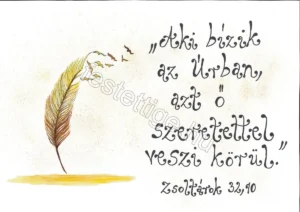 „Aki bízik
az Úrban,
azt Ő
szeretettel
veszi körül."
Zsoltárok 32,10